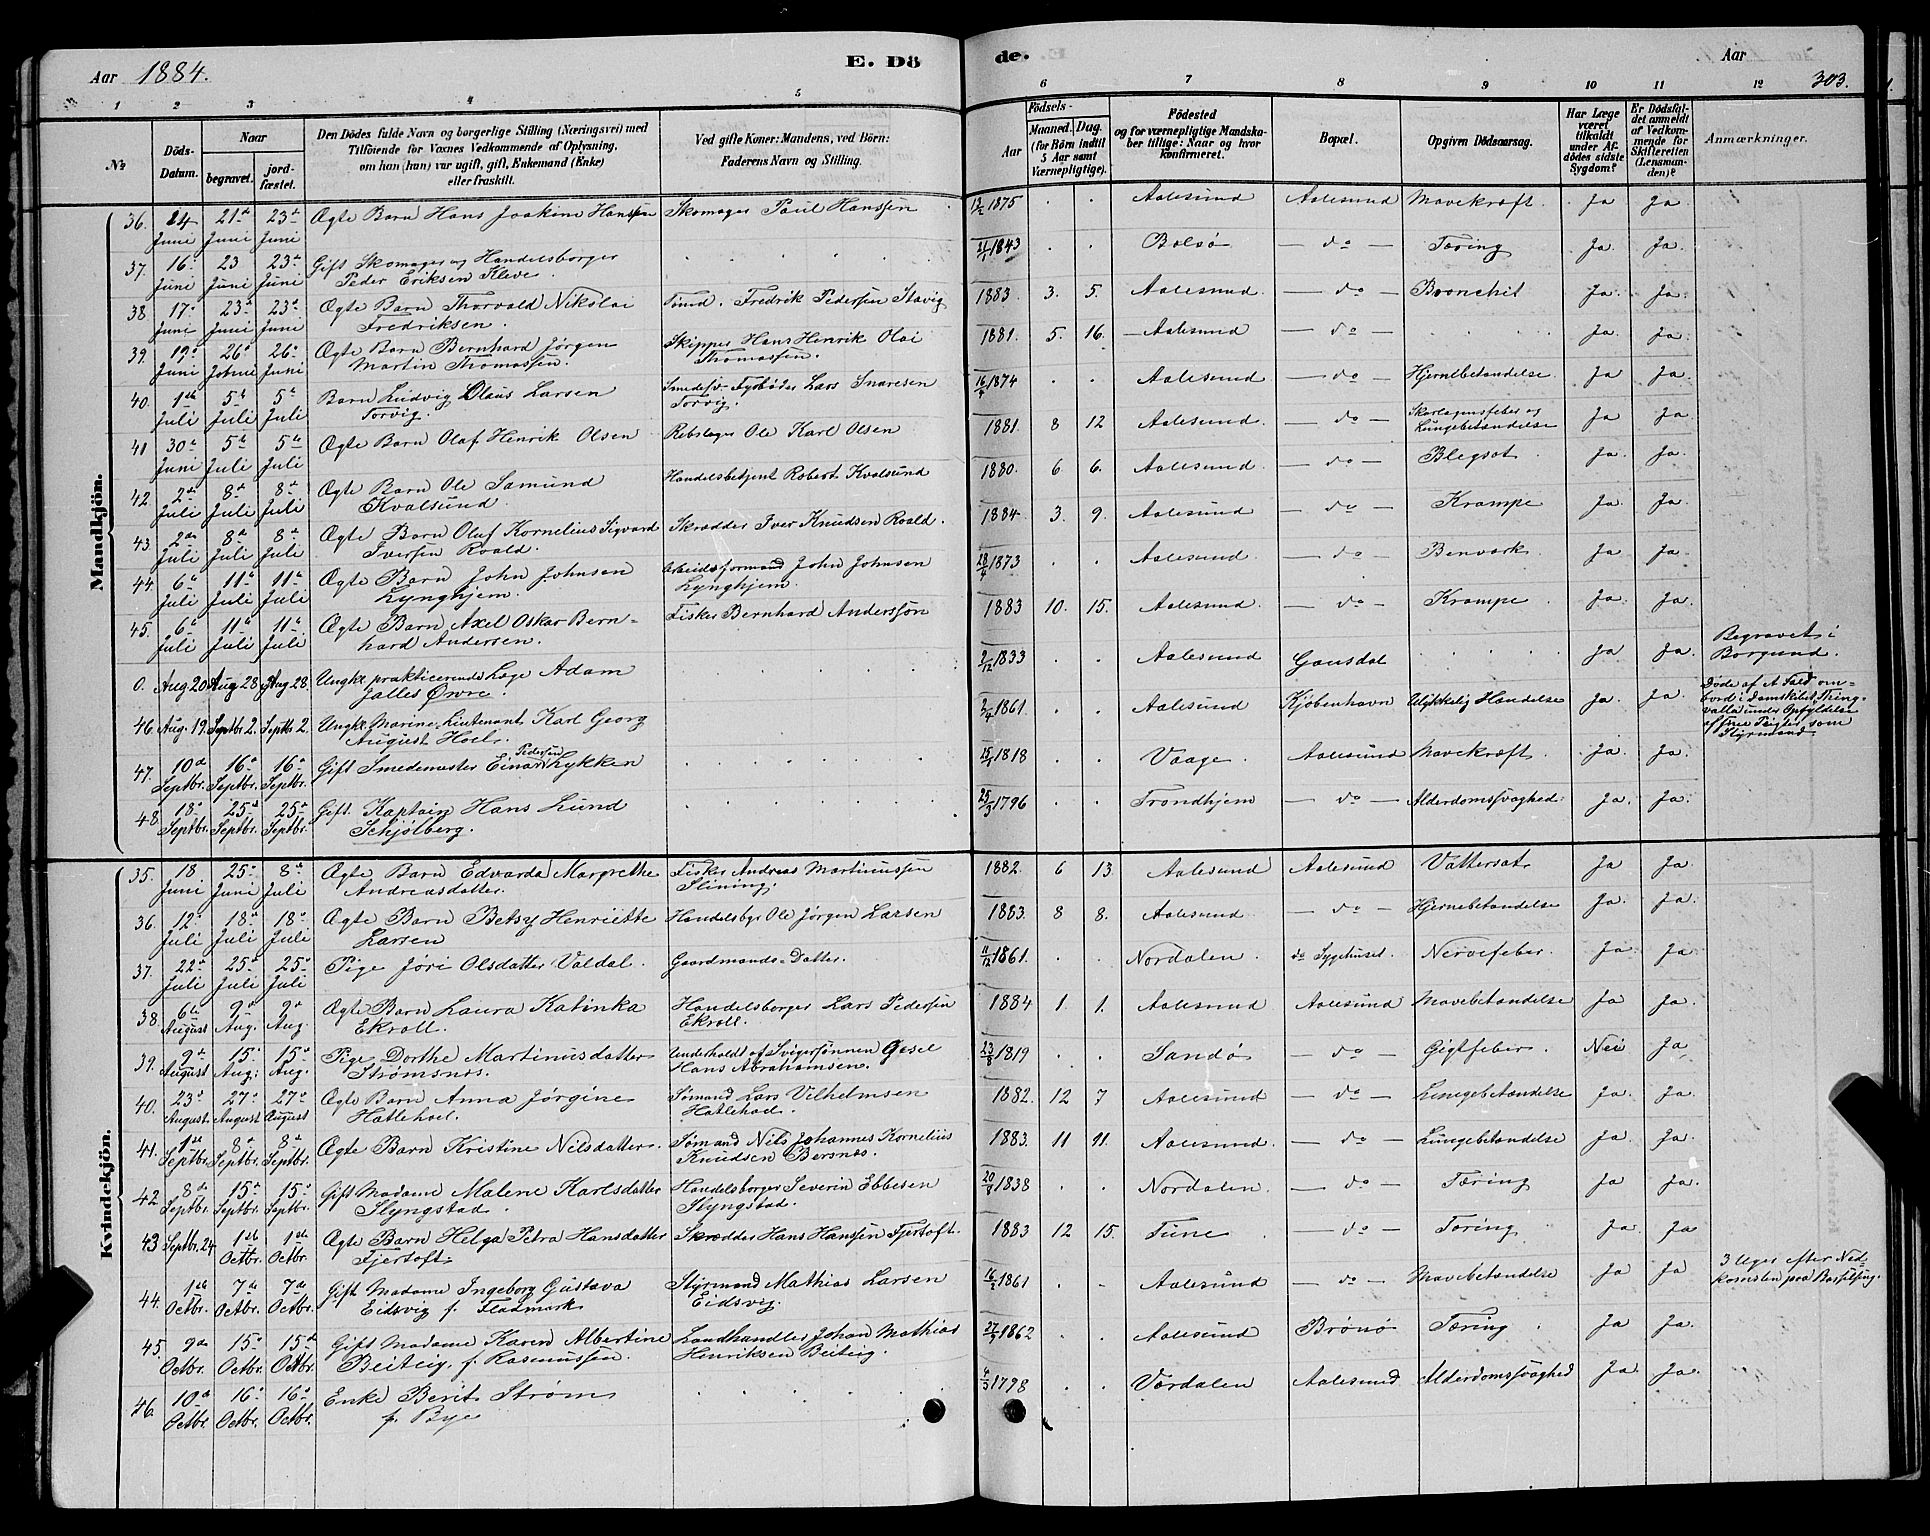 Aar 1884.
E. Dö
de.
Aar
303.
1 2 3 4 5
6 7 8 9 10 11 12
No
Döds-Datum.
Naar
begravet.
jord-fæstet.
Den Dödes fulde Navn og borgerlige Stilling (Næringsvei) med
Tilföiende for Voxnes Vedkommende af Oplysning,
om han (hun) var ugift, gift, Enkemand (Enke)
eller fraskilt.
Ved gifte Koner: Mandens, ved Börn:
Faderens Navn og Stilling.
Födsels-
Aar
Maaned.
Dag.
(for Börn indtil
5 Aar samt
Værnepligtige).
Födested
og for værnepligtige Mandska-
ber tillige: Naar og hvor
konfirmeret.
Bopæl.
Opgiven Dödsaarsag.
Har Læge
været
tilkaldt
under Af-
dödes sidste
Sygdom?
Er Dödsfal-
det anmeldt
af Vedkom-
mende for
Skifteretten
(Lensman-
den)?
Anmærkninger.
Mandkjön.
36. 14 Juni 21de Juni 23de Juni Ægte Barn Hans Joakim Hanssen Skomager Paul Hanssen 1875 . . Aalesund Aalesund Mavekræft. Ja Ja.
37. 16. Juni 23 Juni 23de Juni Gift Skomager og Handelsborger Peder Eriksen Kleve. 1843 . . Bolsø — do — Tæring Ja. Ja.
38 17. Juni 23de Juni 23de Juni Ægte Barn Thorvald Nikolai Fredriksen. Tømd. Fredrik Pedersen Stavig 1883. 3. 5. Aalesund — do — Bronchit Ja. Ja.
39. 19. Juni 26. Juni 26. Juni Ægte Barn Bernhard Jørgen Martin Thomassen. Skipper Hans Henrik Olai Thomassen. 1881. 5. 16. Aalesund — do — Ja. Ja.
40. 1ste Juli 5te Juli 5te Juli Barn Ludvig Olaus Larsen Torvig. Lars Torvig. 16/4 1874 . . Aalesund — do — Hjernebetændelse. Ja Ja.
41 30. Juni 5te Juli 5te Juli Ægte Barn Olaf Henrik Olsen Rebslager Ole Karl Olsen 1881. 8 12 Aalesund. — do — Skarlagensfeber og Lungebetændelse Ja Ja.
42. 2den Juli 8de Juli 8de Juli Ægte Barn Ole Samund Kvalsund. Handelsbetjent Robert Kvalsund 1880. 6 6. Aalesund. — do — Blegsot. Ja. Ja.
43. 2den Juli 8de Juli 8de Juli Ægte Barn Oluf Kornelius Sigvard Iversen Roald. Skrædder Iver Knudsen Roald. 1884 3. 9. Aalesund — do — Krampe Ja. Ja
44. 6te Juli 11te Juli 11te Juli Ægte Barn John Johnsen Lynghjem. Arbeidsformand John Johnsen Lynghjem. 1873 . . Aalesund. — do — Benværk. Ja Ja.
45. 6te Juli 11te Juli 11te Juli Ægte Barn Axel Oskar Bern-hard Andersen. Fisker Bernhard Anderssøn 1883 10. 15. Aalesund. — do — Krampe Ja. Ja.
0. Aug 20 Aug 28 Aug 28. Ungkr. prakticerende Læge Adam Jalles Øvre. 2/12 1833 . . Aalesund Gausdal Ja Ja. Begravet i Borgund.
46. Aug. 19. Septbr. 2. Septbr 2. Ungkr. Marine Lieutenant Karl Georg August Hoel. 2/4 1861. . . Aalesund Kjøbenhavn Ulykkelig Hændelse Ja. Ja. Døde af et Fald om-bord i Damskibet Thing-valla under Opfyldelse af sine Pligter som Styrmand
47. 10de Septbr. 16de Septbr. 16de Septbr. Gift Smedemester Einar Pedersen Lykken 1818 . . Vaage. Aalesund Mavekræft. Ja. Ja.
48. 18de Septbr. 25de Septbr. 25de Septbr. Gift. Kaptain Hans Lund Schjølberg. 25/3 1796 . . Trondhjem — do — Alderdomssvaghed. Ja. Ja.
Kvindekjön.
35. 18 Juni 25. Juni 8de Juli Ægte Barn Edvarda Margrethe Andreasdatter. Fisker Andreas Martinussen Slining. 1882. 6 13. Aalesund Aalesund Vattersot. Ja Ja.
36. 12te Juli 18de Juli 18de Juli Ægte Barn Betsy Henriette Larsen Handelsbgr Ole Jørgen Larsen 1883. 8 8. Aalesund — do — Hjernebetændelse Ja. Ja.
37. 22de Juli 25de Juli 25de Juli Pige Jøri Olsdatter Valdal. Gaardmands-Datter. 11/12 1861. . . Nordalen. do Sygehuset. Nervefeber. Ja Ja.
38. 6te August 9de Aug. 9de Aug. Ægte Barn Laura Katinka Ekroll. Handelsborger Lars Pedersen Ekroll. 1884 1. 1. Aalesund Aalesund Mavebetændelse Ja Ja.
39. 9de August 15. Aug. 15. Aug. Pige Dorthe Martinusdatter Strømsnes. Underholdt af Svigersønnen Hans Abrahamsen. 23/8 1819 . . Sandø — do — Gigtfeber. Nei Ja
40. 23de August 27de August 27de August Ægte Barn Anna Jørgine Hatlehoel. Sømand Lars Vilhelmsen Hatlehoel. 1882. 12 7 Aalesund — do — Lungebetændelse Ja Ja.
41. 1ste Septbr. 8de Septbr. 8de Septbr. Ægte Barn Kristine Nilsdatter. Sømand Nils Johannes Kornelius Knudsen Bersnæs. 1883. 11 21. Aalesund. — do — Lungebetændelse Ja. Ja.
42. 8de Septbr. 15de Septbr. 15de Septbr. Gift Madame Malene Karlsdatter Slyngstad. Handelsborger Severin Ebbesen Slyngstad. 20/8 1838 . . Nordalen. — do — Tæring Ja Ja.
43 Septbr. 24 1ste Octbr. 1ste Octbr. Ægte Barn Helga Petra Hansdatter Fjertoft. Skrædder Hans Hansen Fjertoft. 1883 12 15. Tune — do — Tæring. Ja. Ja
44. 1ste Octbr. 7de Octbr. 7de Octbr. Gift Madame Ingeborg Gustava Eidsvig f. Fladmark Styrmand Mathias Larsen Eidsvig. 16/2 1861 . . Aalesund — do — Mavebetændelse Ja Ja 3 Uger efter Ned-komsten paa Barselseng.
45. 9de Octbr. 15. Octbr. 15de Octbr. Gift Madame Karen Albertine Beiteig. f. Rasmussen. Landhandler Johan Mathias Henriksen Beiteig. 1862 . . Aalesund Brønø Tæring. Ja Ja.
46. 10de Octbr. 16. Octbr. 16. Octbr. Enke Berit Strøm f. Bye 1798 . . Værdalen Aalesund Alderdomssvaghed Ja. Ja.